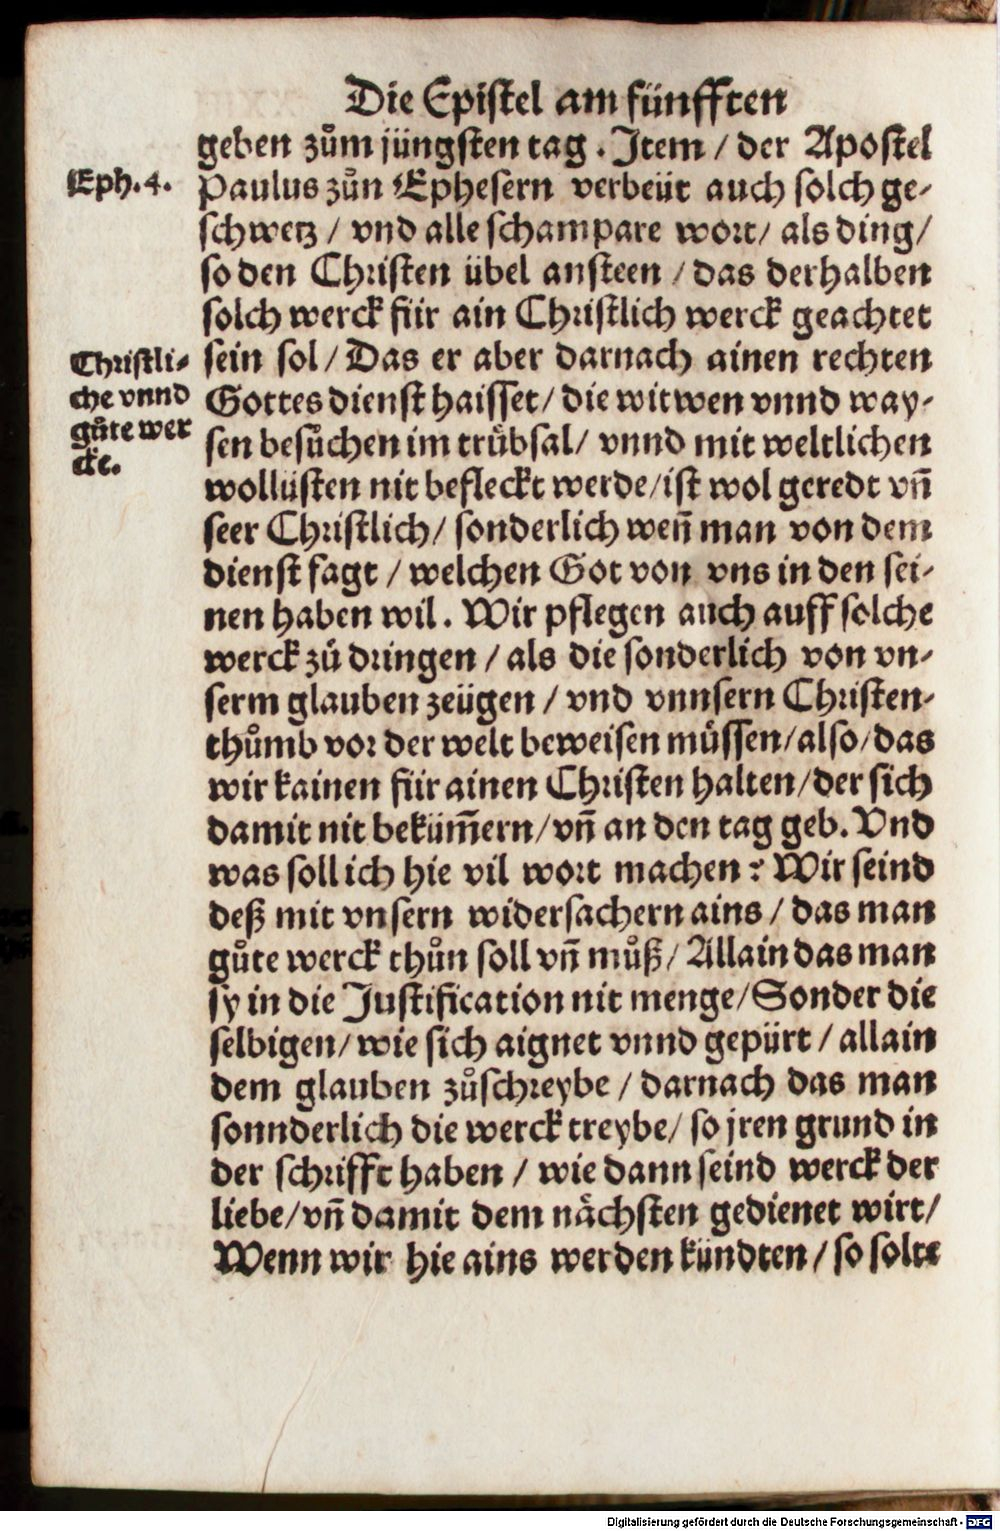 Die Epistel am fünfften
geben zů̊m jüngsten tag. Item / der Apostel
Eph. 4.
Paulus zůn Ephesern verbeüt auch solch ge-
schwetz / vnd alle schampare wort / als ding /
so den Christen übel ansteen / das derhalben
solch werck für ain Christlich werck geachtet
Christli-
che vnnd
gůte wer
cke.
sein sol / Das er aber darnach ainen rechten
Gottes dienst haisset / die witwen vnnd way-
sen besůchen im trůbsal / vnnd mit weltlichen
wollüsten nit befleckt werde / ist wol geredt vñ
seer Christlich / sonderlich weñ man von dem
dienst sagt / welchen Got von vns in den sei-
nen haben wil. Wir pflegen auch auff solche
werck zů dringen / als die sonderlich von vn-
serm glauben zeügen / vnd vnnsern Christen-
thůmb vor der welt beweisen müssen / also / das
wir kainen für ainen Christen halten / der sich
damit nit beküm̃ern / vñ an den tag geb. Vnd
was soll ich hie vil wort machen? Wir seind
deß mit vnsern widersachern ains / das man
gůte werck thůn soll vñ můß / Allain das man
sy in die Justification nit menge / Sonder die
selbigen / wie sich aignet vnnd gepürt / allain
dem glauben zůschreybe / darnach das man
sonnderlich die werck treybe / so jren grund in
der schrifft haben / wie dann seind werck der
liebe / vñ damit dem nächsten gedienet wirt /
Wenn wir hie ains werden kündten / so solte
Digitalisierung gefördert durch die Deutsche Forschungsgemeinschaft - DFG